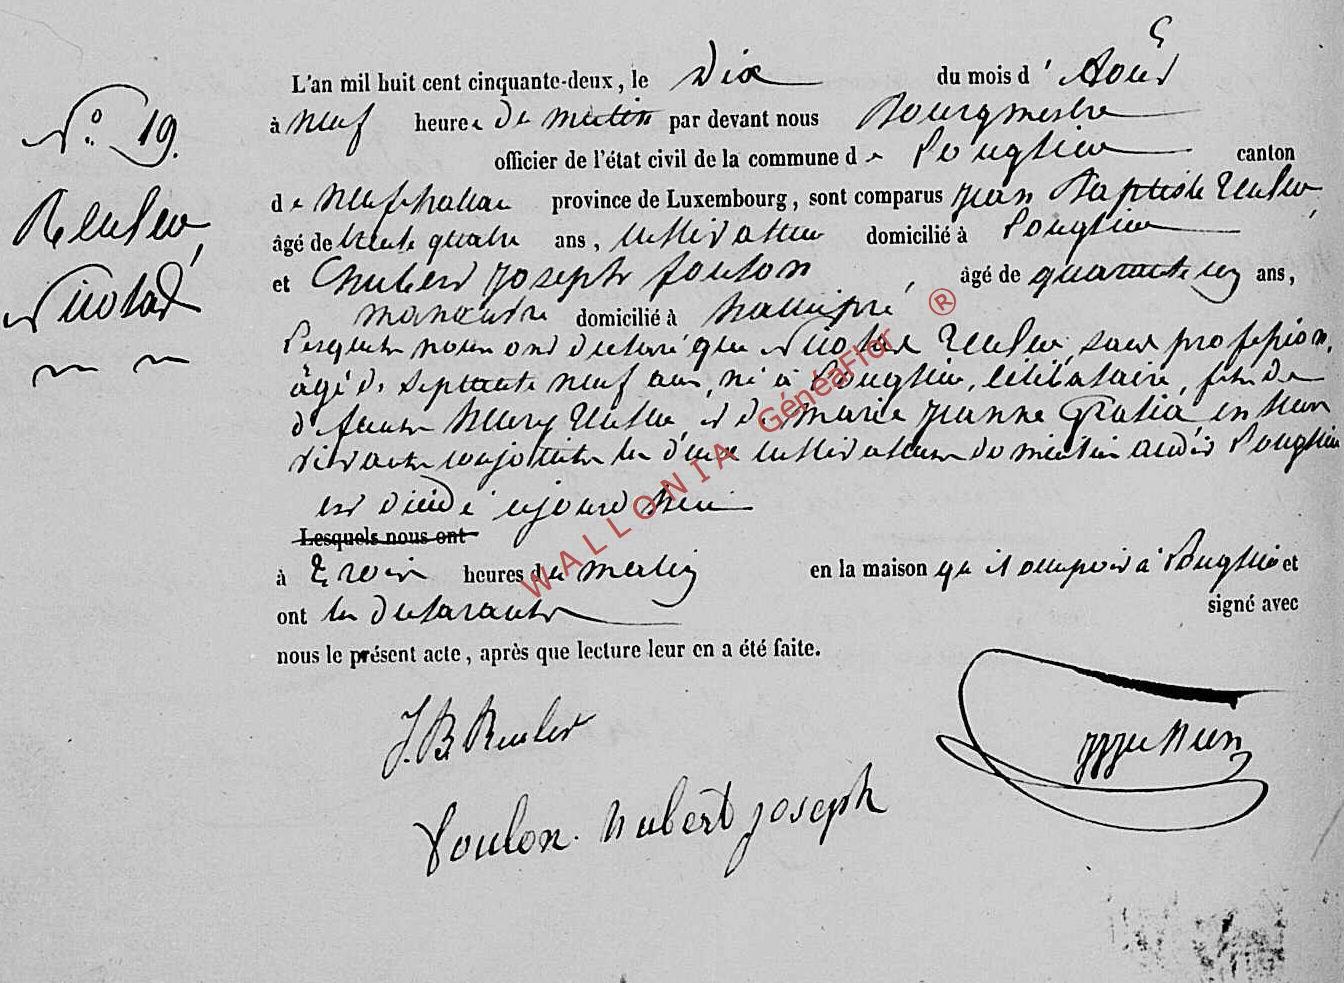 N.° 19.
Reuler,
Nicolas
L'an mil huit cent cinquante-deux, le Dix du mois d' Août
à neuf heures du matin par devant nous Bourgmestre
officier de l'état civil de la commune de Longlier canton
de Neufchateau province de Luxembourg, sont comparus Jean Baptiste Reuler,
âgé de trente quatre ans, cultivateur domicilié à Longlier
et Hubert Joseph Foulon, âgé de quarante ans,
manœuvre domicilié à Massepré
Lesquels nous ont déclaré que Nicolas Reuler, sans profession,
âgé de septante neuf ans, né à Longlier, célibataire, fils de
défunts Henry Reuler et de Marie Jeanne en leur
vivants conjoints les deux cultivateurs audit Longlier
est décédé aujourd'hui
Lesquels nous ont
à trois heures du matin en la maison qu'il occupoit à Longlier et
ont les déclarants signé avec
nous le présent acte, après que lecture leur en a été faite.
J. B. Reuler
foulon. hubert joseph
WALLONIA GénéaFlor ®